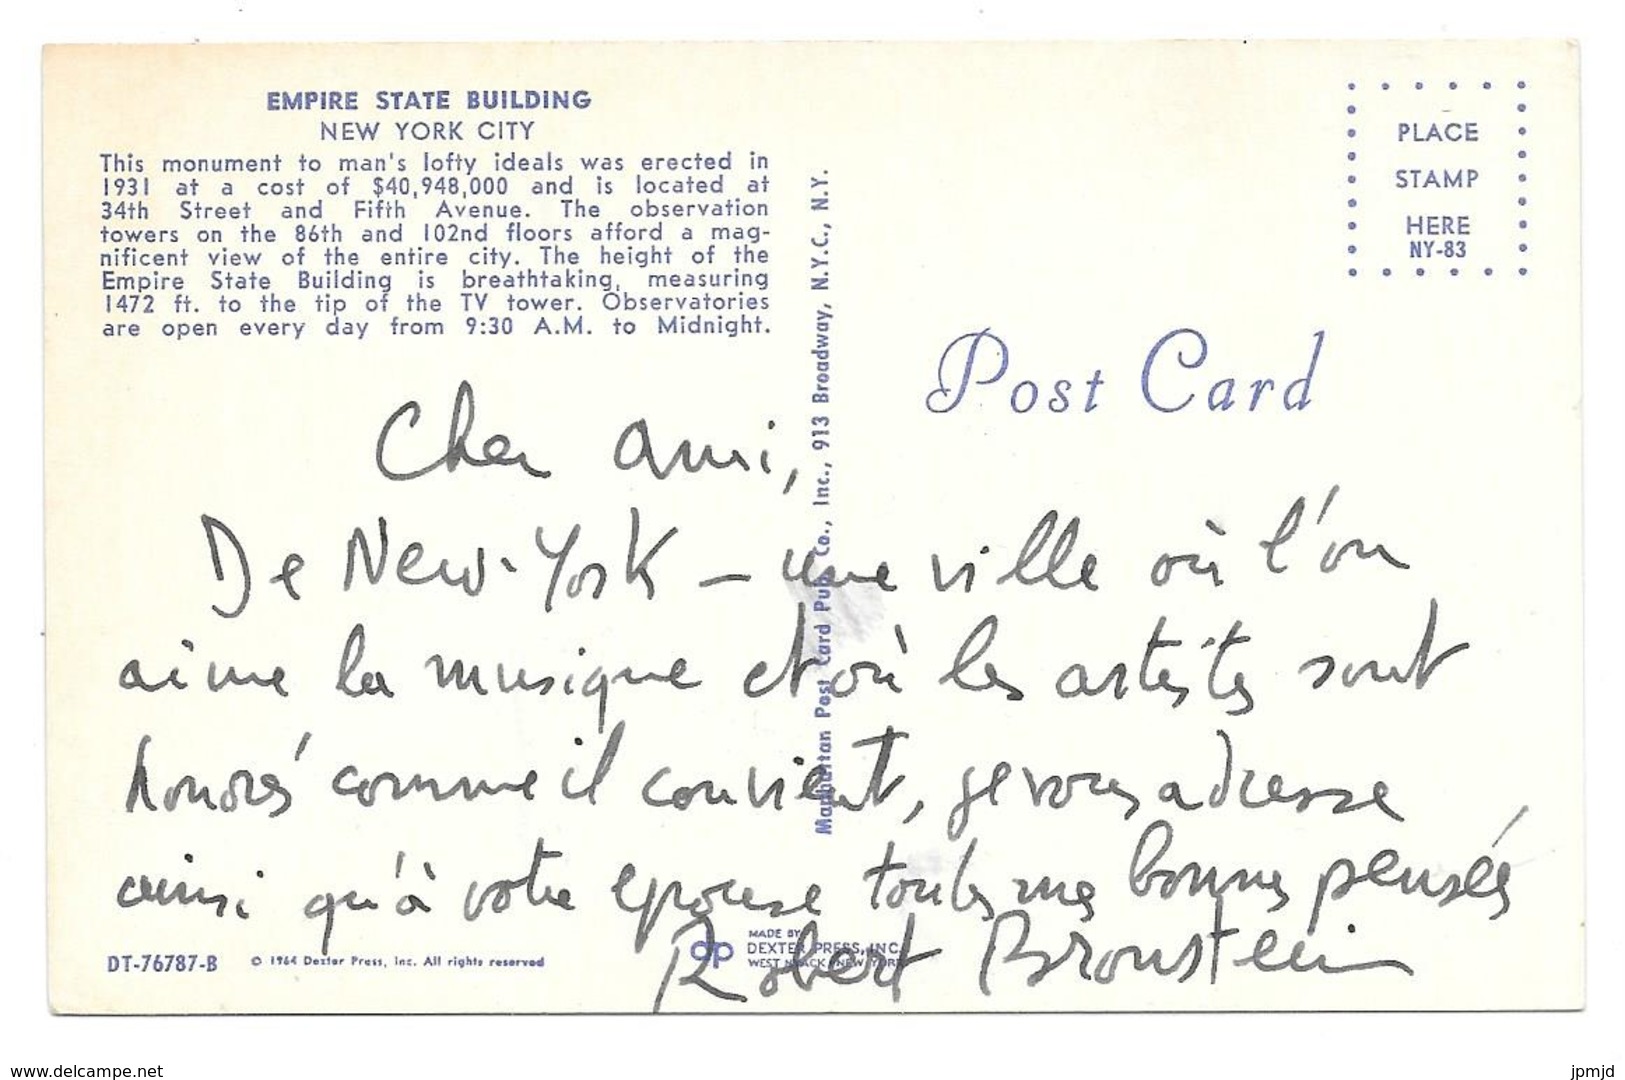 EMPIRE STATE BUILDING
NEW YORK CITY
This monument to man's lofty ideals was erected in
1931 at a cost of $40,948,000 and is located at
34th Street and Fifth Avenue. The observation
towers on the 86th and 102nd floors afford a mag-
nificent view of the entire city. The height of the
Empire State Building is breathtaking, measuring
1472 ft. to the tip of the TV tower. Observatories
are open every day from 9:30 A.M. to Midnight.
Manhattan Post Card Pub. Co., Inc., 913 Broadway, N.Y.C., N.Y.
PLACE
STAMP
HERE
NY-83
Post Card
Cher ami,
De New-York – une ville où l'on
aime la musique et où les artistes sont
honorés comme il convient, je vous adresse
ainsi qu'à votre epouse toutes mes bonnes pensées
Robert Bronstein
DT-76787-B
© 1964 Dexter Press, Inc. All rights reserved
dp
MADE BY
DEXTER PRESS, INC.
WEST NYACK, NEW YORK
www.delcampe.net
jpmjd